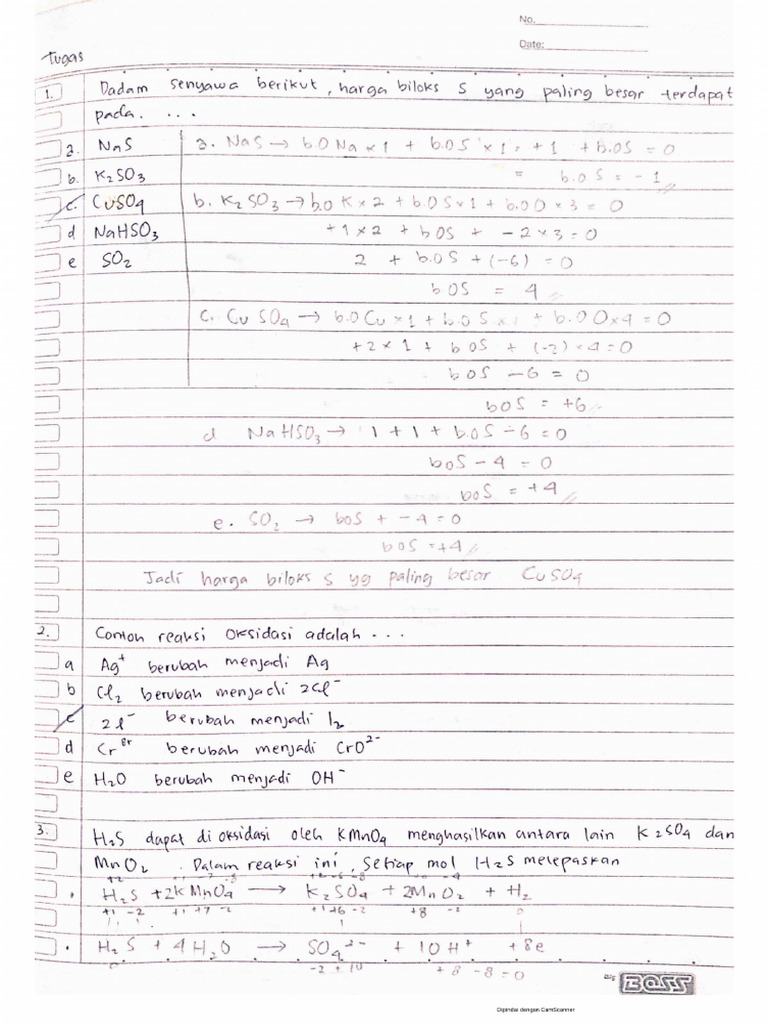 No.
Date:
Tugas
1. Dadam senyawa berikut, harga biloks S yang paling besar terdapat
pada. ...
a. NaS a. NaS → b.O Na × 1 + b.OS × 1 = +1 + b.OS = 0
b. K₂SO₃ = b.OS = -1
c. CuSO₄ b. K₂SO₃ → b.o K × 2 + b.OS × 1 + b.OO × 3 = 0
d NaHSO₃ +1 × 2 + bOS + -2 × 3 = 0
e SO₂ 2 + b.OS + (-6) = 0
bOS = 4
c. CuSO₄ → b.O Cu × 1 + b.OS × 1 + b.OO × 4 = 0
+2 × 1 + bOS + (-2) × 4 = 0
bOS - 6 = 0
bOS = +6
d NaHSO₃ → 1 + 1 + b.OS - 6 = 0
boS - 4 = 0
boS = +4
e. SO₂ → boS + -4 = 0
boS = +4
Jadi harga biloks S yg paling besar CuSO₄
2. Contoh reaksi Oksidasi adalah ...
a Ag⁺ berubah menjadi Ag
b Cl₂ berubah menjadi 2Cl⁻
c 2I⁻ berubah menjadi I₂
d Cr berubah menjadi CrO²⁻
e H₂O berubah menjadi OH⁻
3. H₂S dapat di oksidasi oleh KMnO₄ menghasilkan antara lain K₂SO₄ dan
MnO₂. Dalam reaksi ini, Setiap mol H₂S melepaskan
• H₂S + 2KMnO₄ → K₂SO₄ + 2MnO₂ + H₂
+1 -2 +1 +7 -2 +1 +6 -2 +8 -2 0
• H₂S + 4H₂O → SO₄²⁻ + 10H⁺ + 8e
0 -2 + 10 +8 -8 = 0
BIG BOSS
Dipindai dengan CamScanner